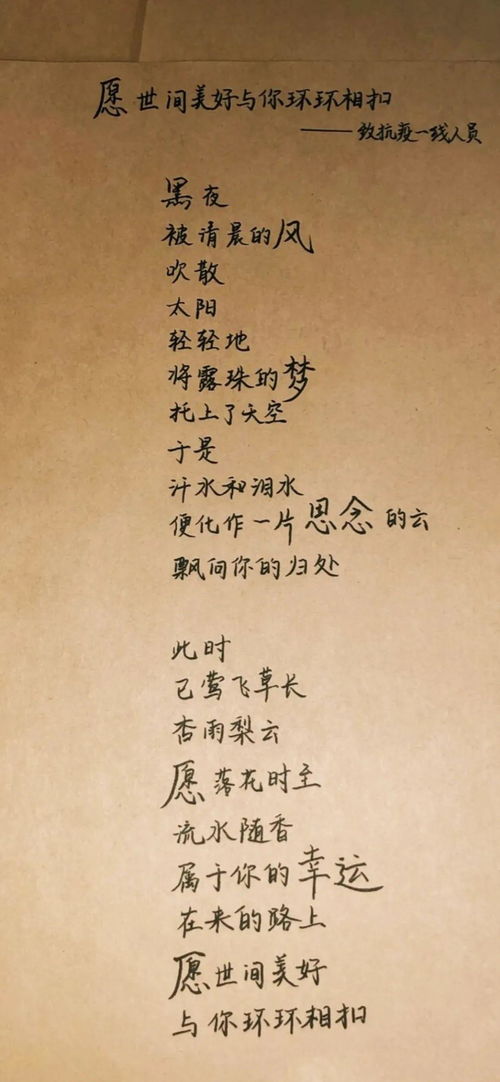 愿世间美好与你环环相扣
——致抗疫一线人员
黑夜
被清晨的风
吹散
太阳
轻轻地
将露珠的梦
托上了天空
于是
汗水和泪水
便化作一片思念的云
飘向你的归处
此时
已莺飞草长
杏雨梨云
愿落花时至
流水随香
属于你的幸运
在来的路上
愿世间美好
与你环环相扣